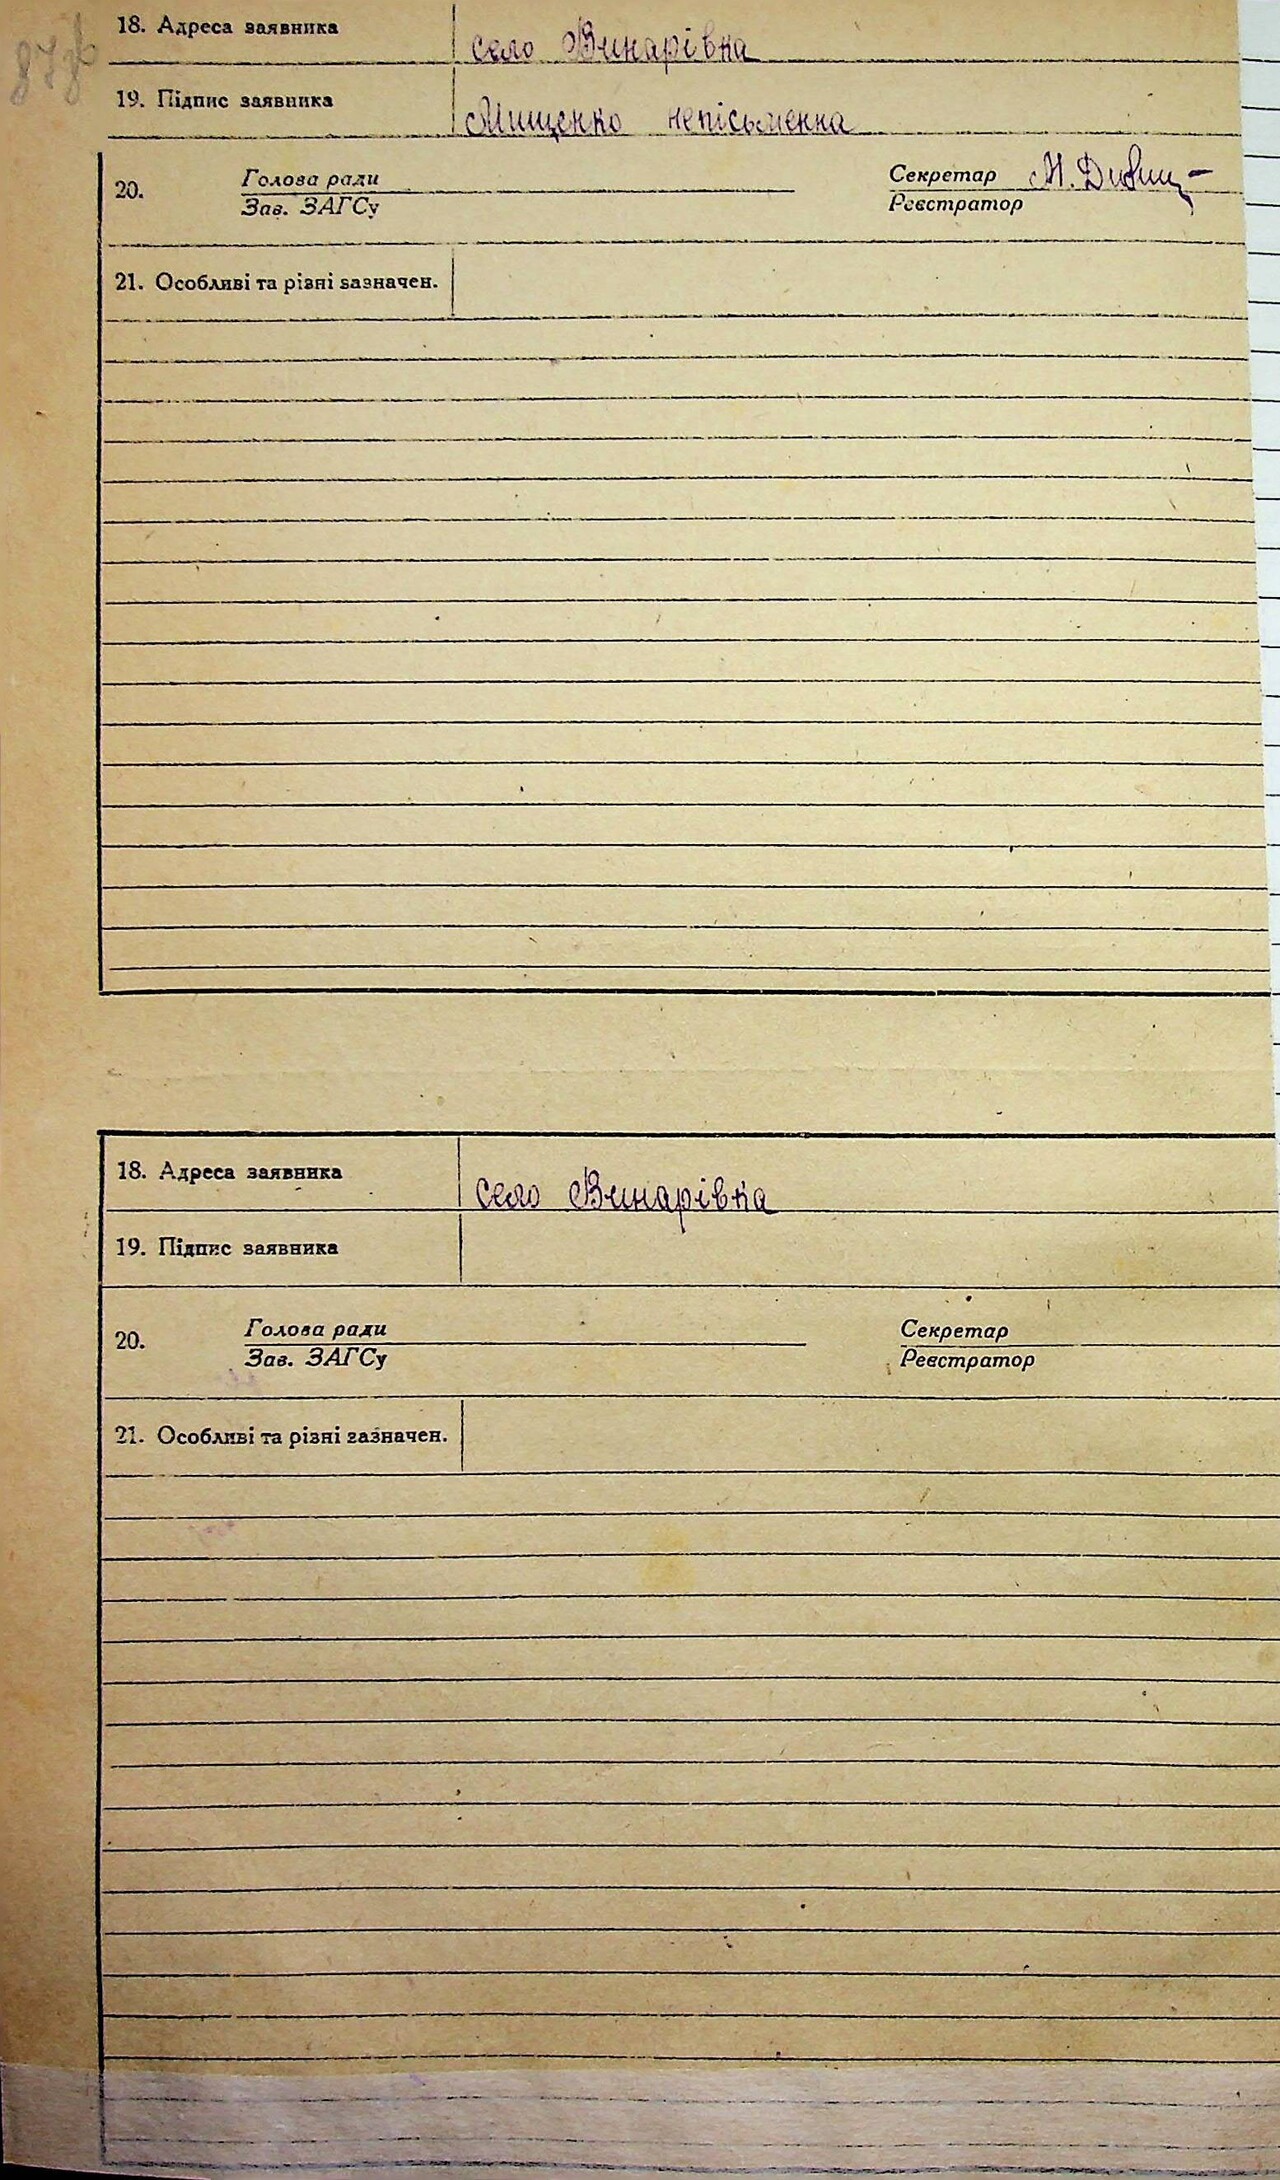 87зв
18. Адреса заявника село Винарівка
19. Підпис заявника Мищенко непісьменна
20. Голова ради Секретар М.
Зав. ЗАГСу Реєстратор
21. Особливі та різні зазначен.
18. Адреса заявника село Винарівка
19. Підпис заявника
20. Голова ради Секретар
Зав. ЗАГСу Реєстратор
21. Особливі та різні зазначен.